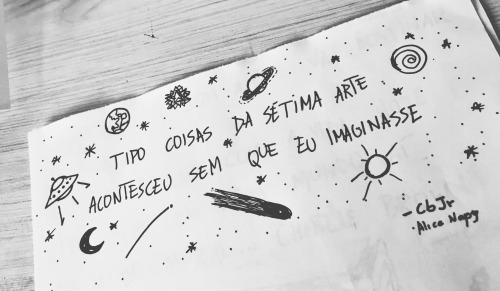 TIPO COISAS DA SÉTIMA ARTE
ACONTESCEU SEM QUE EU IMAGINASSE
- CbJr
• Alice Napy